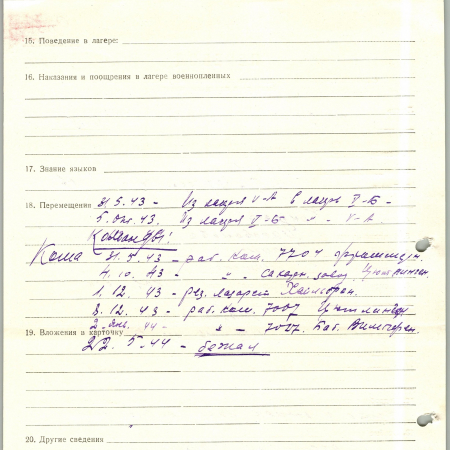 15. Поведение в лагере:
16. Наказания и поощрения в лагере военнопленных
17. Знание языков
18. Перемещения 31.5.43 - Из лагеря V-А в лагерь V-Б -
5. Окт. 43. Из лагеря V-Б " - V-А
Команды!
31. 7. 43 - раб. ком. 7704
4. 10. 43 - " "
1. 12. 43 - рез. лазарет
8. 12. 43 - раб. ком. 7007
19. Вложения в карточку 2. Янв. 44 - " - 7007.
22. 5. 44 - бежал
20. Другие сведения